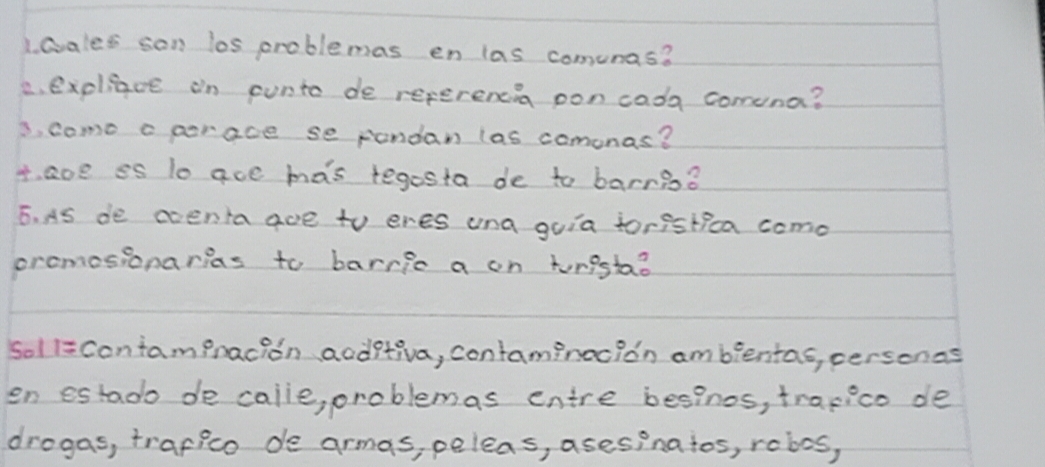 1.cuales son los problemas en las comunas?
2.explique un punto de referencia por cada comuna?
3.como o porque se fundan las comunas?
4.que es lo que más tegusta de tu barrio?
5.As de cuenta que tu eres una guía turistica como
promosionarias tu barrio a un turista?
Sol1=contaminación auditiva, contaminación ambientas, personas
en estado de calle, problemas entre besinos, trafico de
drogas, trafico de armas, peleas, asesinatos, robos,